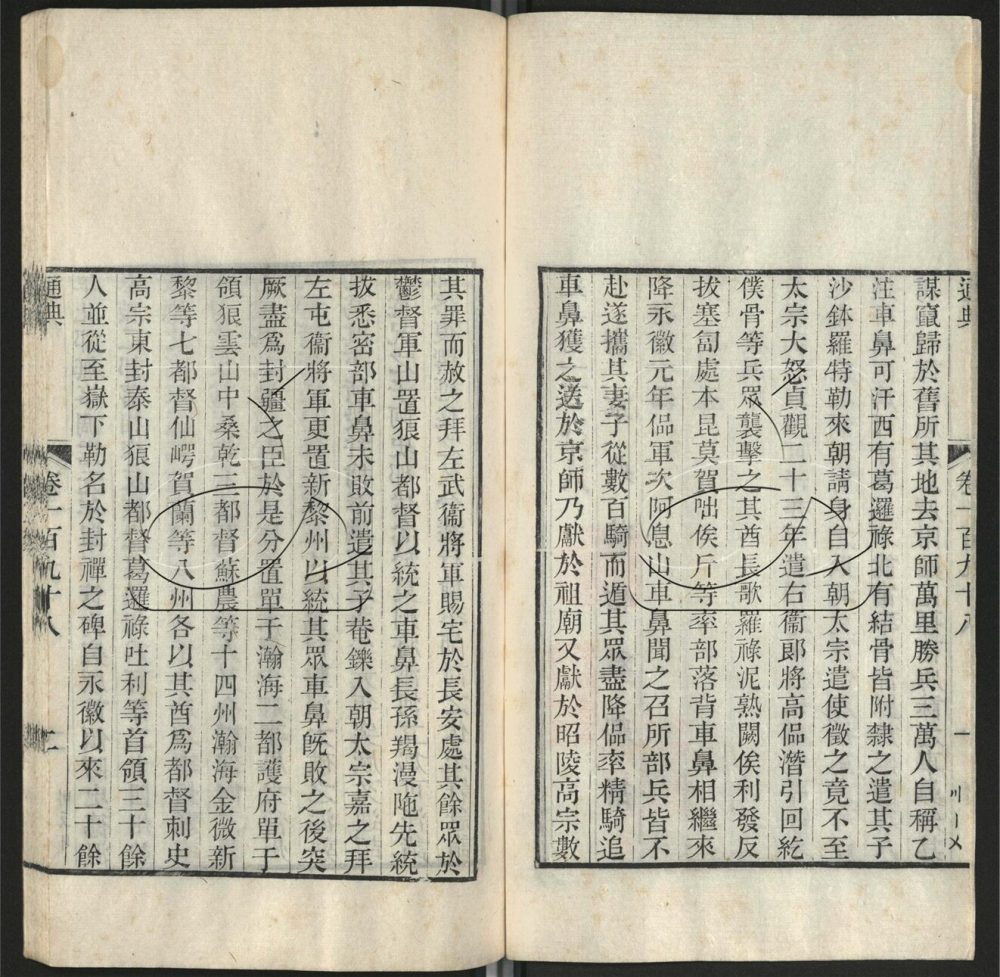 通典
卷一百九十八
一
謀竄歸於舊所其地去京師萬里勝兵三萬人自稱乙
注車鼻可汗西有葛邏祿北有結骨皆附隸之遣其子
沙鉢羅特勒來朝請身自入朝太宗遣使徵之竟不至
太宗大怒貞觀二十三年遣右衞郎將高偘潛引回紇
僕骨等兵眾襲擊之其酋長歌羅祿泥熟闕俟利發反
拔塞匐處本昆莫賀咄俟斤等率部落背車鼻相繼來
降永徽元年偘軍次阿息山車鼻聞之召所部兵皆不
赴遂攜其妻子從數百騎而遁其眾盡降偘率精騎追
車鼻獲之送於京師乃獻於祖廟又獻於昭陵高宗數
其罪而赦之拜左武衞將軍賜宅於長安處其餘眾於
鬱督軍山置狼山都督以統之車鼻長孫羯漫陁先統
拔悉密部車鼻未敗前遣其子菴鑠入朝太宗嘉之拜
左屯衞將軍更置新黎州以統其眾車鼻旣敗之後突
厥盡爲封疆之臣於是分置單于瀚海二都護府單于
領狼雲山中桑乾三都督蘇農等十四州瀚海金微新
黎等七都督仙崿賀蘭等八州各以其酋爲都督刺史
高宗東封泰山狼山都督葛邏祿吐利等首領三十餘
人並從至嶽下勒名於封禪之碑自永徽以來二十餘
通典
卷一百九十八